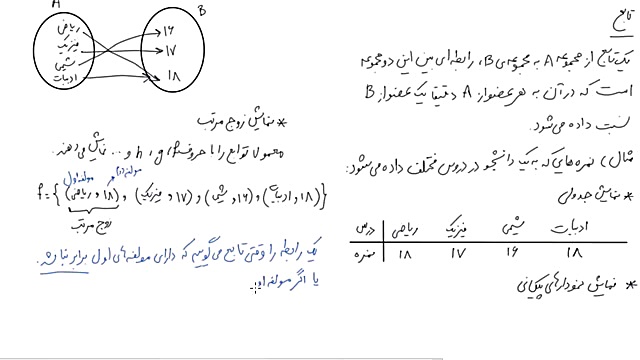 تابع
یک تابع از مجموعه A به مجموعه‌ی B، رابطه‌ای بین این دو مجموعه
است که در آن به هر عضو از A دقیقا یک عضو از B
نسبت داده می‌شود.
مثال) نمره‌هایی که به یک دانشجو در دروس مختلف داده می‌شود:
* نمایش جدولی
درس ریاضی فیزیک شیمی ادبیات
نمره ۱۸ ۱۷ ۱۶ ۱۸
* نمایش نمودارهای پیکانی
A B
ریاضی ۱۶
فیزیک ۱۷
شیمی ۱۸
ادبیات
* نمایش زوج مرتب
معمولا توابع را با حروف f، g، h و ... نمایش می‌دهند.
مولفه اول مولفه دوم
f={(ریاضی و ۱۸) و (فیزیک و ۱۷) و (شیمی و ۱۶) و (ادبیات و ۱۸)}
زوج مرتب
یک رابطه را وقتی تابع می‌گوییم که دارای مولفه‌های اول برابر نباشد.
یا اگر مولفه او